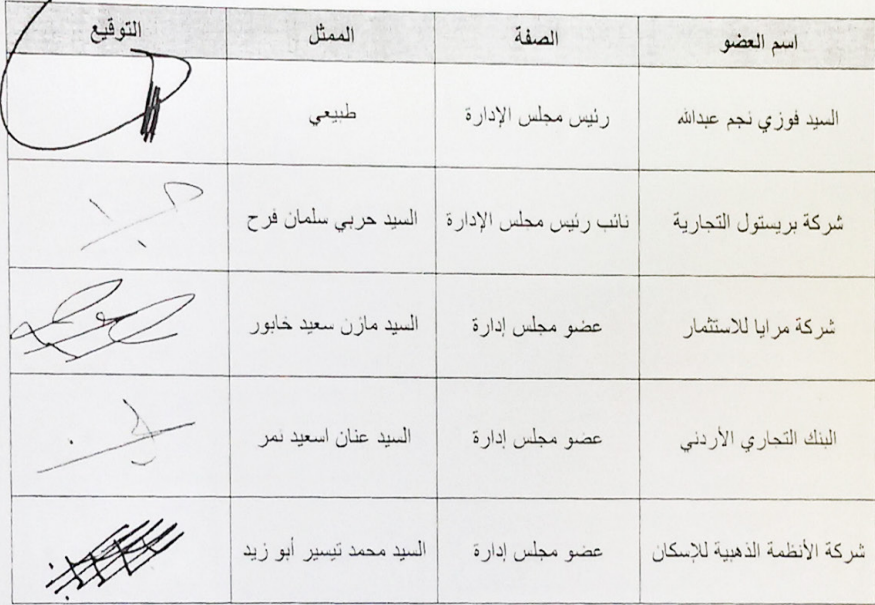 اسم العضو الصفة الممثل التوقيع
السيد فوزي نجم عبدالله رئيس مجلس الإدارة طبيعي
شركة بريستول التجارية نائب رئيس مجلس الإدارة السيد حربي سلمان فرح
شركة مرايا للاستثمار عضو مجلس إدارة السيد مازن سعيد خابور
البنك التجاري الأردني عضو مجلس إدارة السيد عنان اسعيد نمر
شركة الأنظمة الذهبية للإسكان عضو مجلس إدارة السيد محمد تيسير أبو زيد